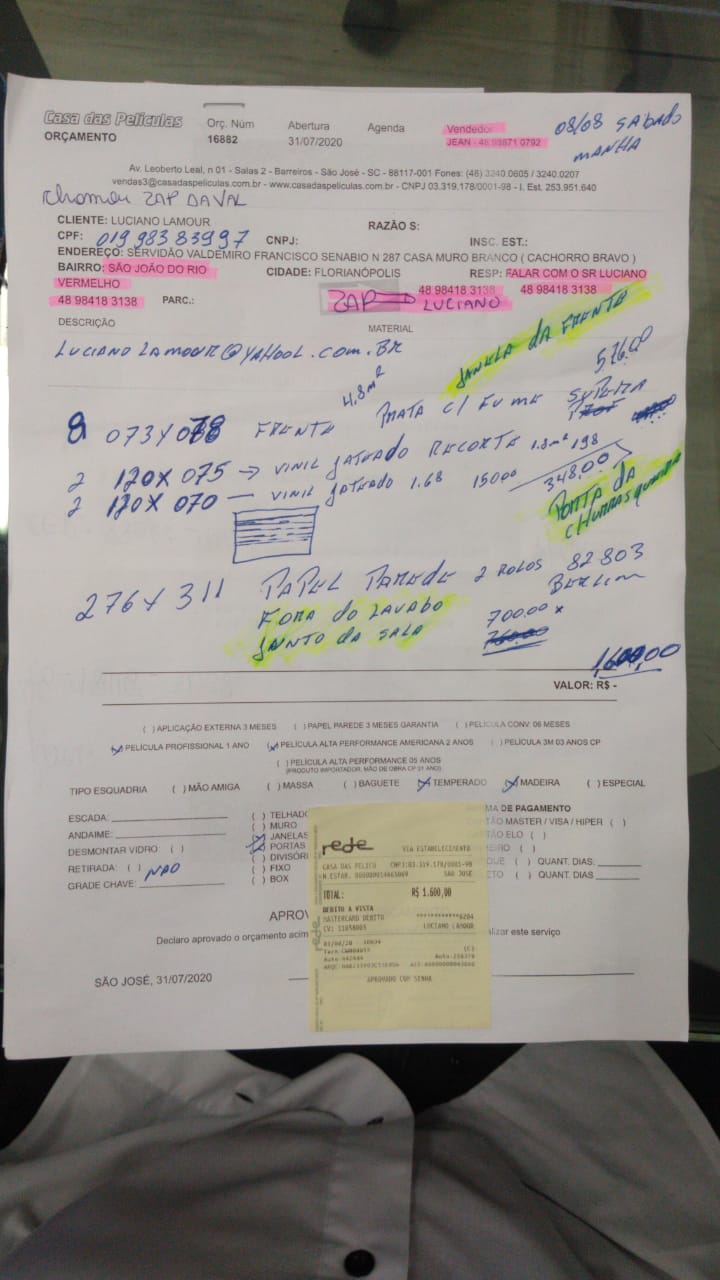 Casa das Películas
ORÇAMENTO
Orç. Núm
16882
Abertura
31/07/2020
Agenda
Vendedor
JEAN - 48 98871 0792
08/08 SABADO
MANHA
Av. Leoberto Leal, n 01 - Salas 2 - Barreiros - São José - SC - 88117-001 Fones: (48) 3240.0605 / 3240.0207
vendas3@casadaspeliculas.com.br - www.casadaspeliculas.com.br - CNPJ 03.319.178/0001-98 - I. Est. 253.951.640
ZAP DAVAL
CLIENTE: LUCIANO LAMOUR
RAZÃO S:
CPF: 019 983 83997
CNPJ:
INSC. EST.:
ENDEREÇO: SERVIDÃO VALDEMIRO FRANCISCO SENABIO N 287 CASA MURO BRANCO ( CACHORRO BRAVO )
BAIRRO: SÃO JOÃO DO RIO VERMELHO
CIDADE: FLORIANÓPOLIS
RESP: FALAR COM O SR LUCIANO
48 98418 3138
PARC.:
ZAP
48 98418 3138
48 98418 3138
LUCIANO
DESCRIÇÃO
MATERIAL
LUCIANO LAMOUR@YAHOOL.COM.BR
JANELA DA FRENTE
4,8m²
576,00
8 073 X 078 FRENTE PRATA C/ FUME
2 120 X 075 → VINIL JATEADO RECORTE 1.8m² 198
2 120 X 070 — VINIL JATEADO 1.68 15000
348,00
PORTA DA
CHURRASQUEIRA
276 X 311 PAPEL PAREDE 2 ROLOS 82803
BERLIM
FORA DO LAVABO
700.00 x
JUNTO DA SALA
760.00
1,600,00
VALOR: R$ -
( ) APLICAÇÃO EXTERNA 3 MESES ( ) PAPEL PAREDE 3 MESES GARANTIA ( ) PELÍCULA CONV. 06 MESES
PELÍCULA PROFISSIONAL 1 ANO PELÍCULA ALTA PERFORMANCE AMERICANA 2 ANOS ( ) PELÍCULA 3M 03 ANOS CP
( ) PELÍCULA ALTA PERFORMANCE 05 ANOS
(PRODUTO IMPORTADOR, MÃO DE OBRA CP 01 ANO)
TIPO ESQUADRIA ( ) MÃO AMIGA ( ) MASSA ( ) BAGUETE TEMPERADO MADEIRA ( ) ESPECIAL
ESCADA:
ANDAIME:
DESMONTAR VIDRO ( )
RETIRADA: ( ) NÃO
GRADE CHAVE:
( ) TELHADO
( ) MURO
JANELAS
PORTAS
( ) DIVISÓRI
( ) FIXO
( ) BOX
MA DE PAGAMENTO
TÃO MASTER / VISA / HIPER ( )
TÃO ELO ( )
EIRO ( )
QUE ( ) QUANT. DIAS.
ETO ( ) QUANT. DIAS
APROV
Declaro aprovado o orçamento acim
alizar este serviço
SÃO JOSÉ, 31/07/2020
rede
VIA ESTABELECIMENTO
CASA DAS PELICU CNPJ:03.319.178/0001-98
SAO JOSE
TOTAL: R$ 1.600,00
DEBITO A VISTA
MASTERCARD DEBITO ************6204
LUCIANO LAMOUR
APROVADO COM SENHA